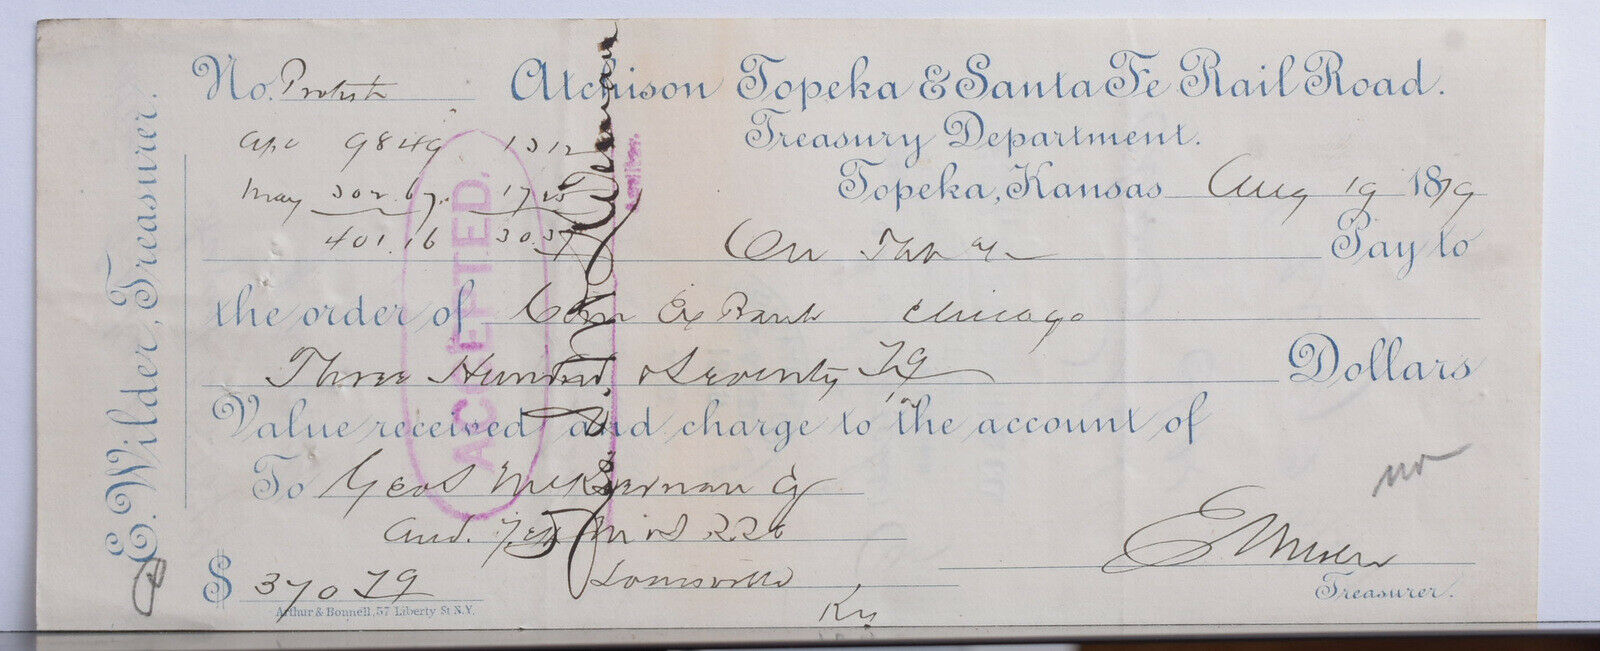 E. Wilder, Treasurer.
No. Protest Atchison Topeka & Santa Fe Rail Road.
Treasury Department.
Topeka, Kansas Aug 19 1879
9849 1312
May 302.67. 17.25
401.16 30.37
On Pay to
the order of Corn Ex Bank Chicago
Three Hundred & Seventy 79 Dollars
Value received and charge to the account of
To Geo S McKiernan
Louisville
Ky
$ 370 79
E Wilder
Treasurer.
Arthur & Bonnell, 57 Liberty St N.Y.
ACCEPTED.
no